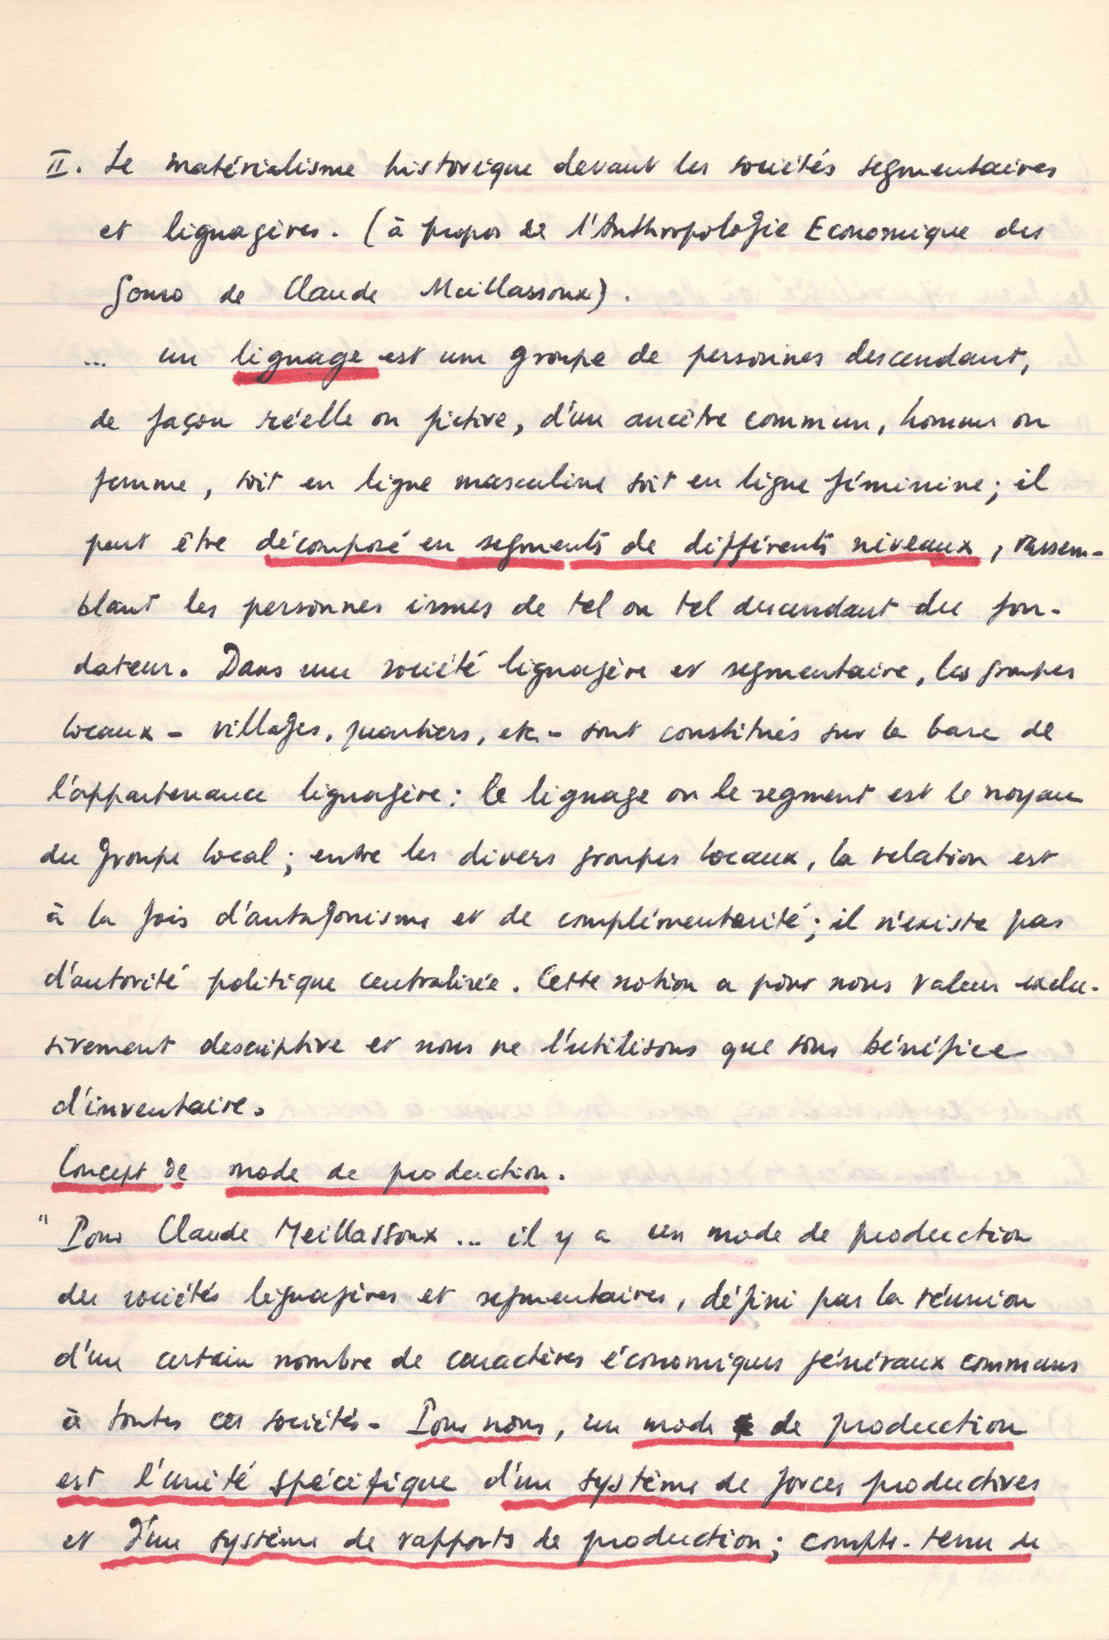 II. Le matérialisme historique devant les sociétés segmentaires
et lignagères. (à propos de l'Anthropologie Economique des
Gouro de Claude Meillassoux).
... un lignage est un groupe de personnes descendant,
de façon réelle ou fictive, d'un ancêtre commun, homme ou
femme, soit en ligne masculine soit en ligne féminine; il
peut être décomposé en segments de différents niveaux, rassem-
blant les personnes issues de tel ou tel descendant du fon-
dateur. Dans une société lignagère et segmentaire, les groupes
locaux - villages, quartiers, etc - sont constitués sur la base de
l'appartenance lignagère: le lignage ou le segment est le noyau
du groupe local; entre les divers groupes locaux, la relation est
à la fois d'antagonisme et de complémentarité; il n'existe pas
d'autorité politique centralisée. Cette notion a pour nous valeur exclu-
sivement descriptive et nous ne l'utilisons que sous bénéfice
d'inventaire.
Concept de mode de production.
" Pour Claude Meillassoux ... il y a un mode de production
des sociétés lignagères et segmentaires, défini par la réunion
d'un certain nombre de caractères économiques généraux communs
à toutes ces sociétés - Pour nous, un mode de production
est l'unité spécifique d'un système de forces productives
et d'un système de rapports de production; compte-tenu de